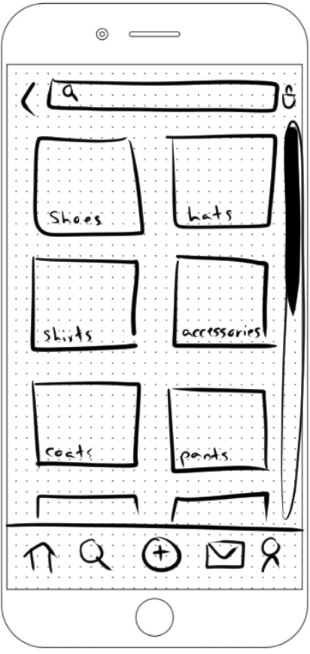 Shoes
hats
shirts
accessories
coats
pants